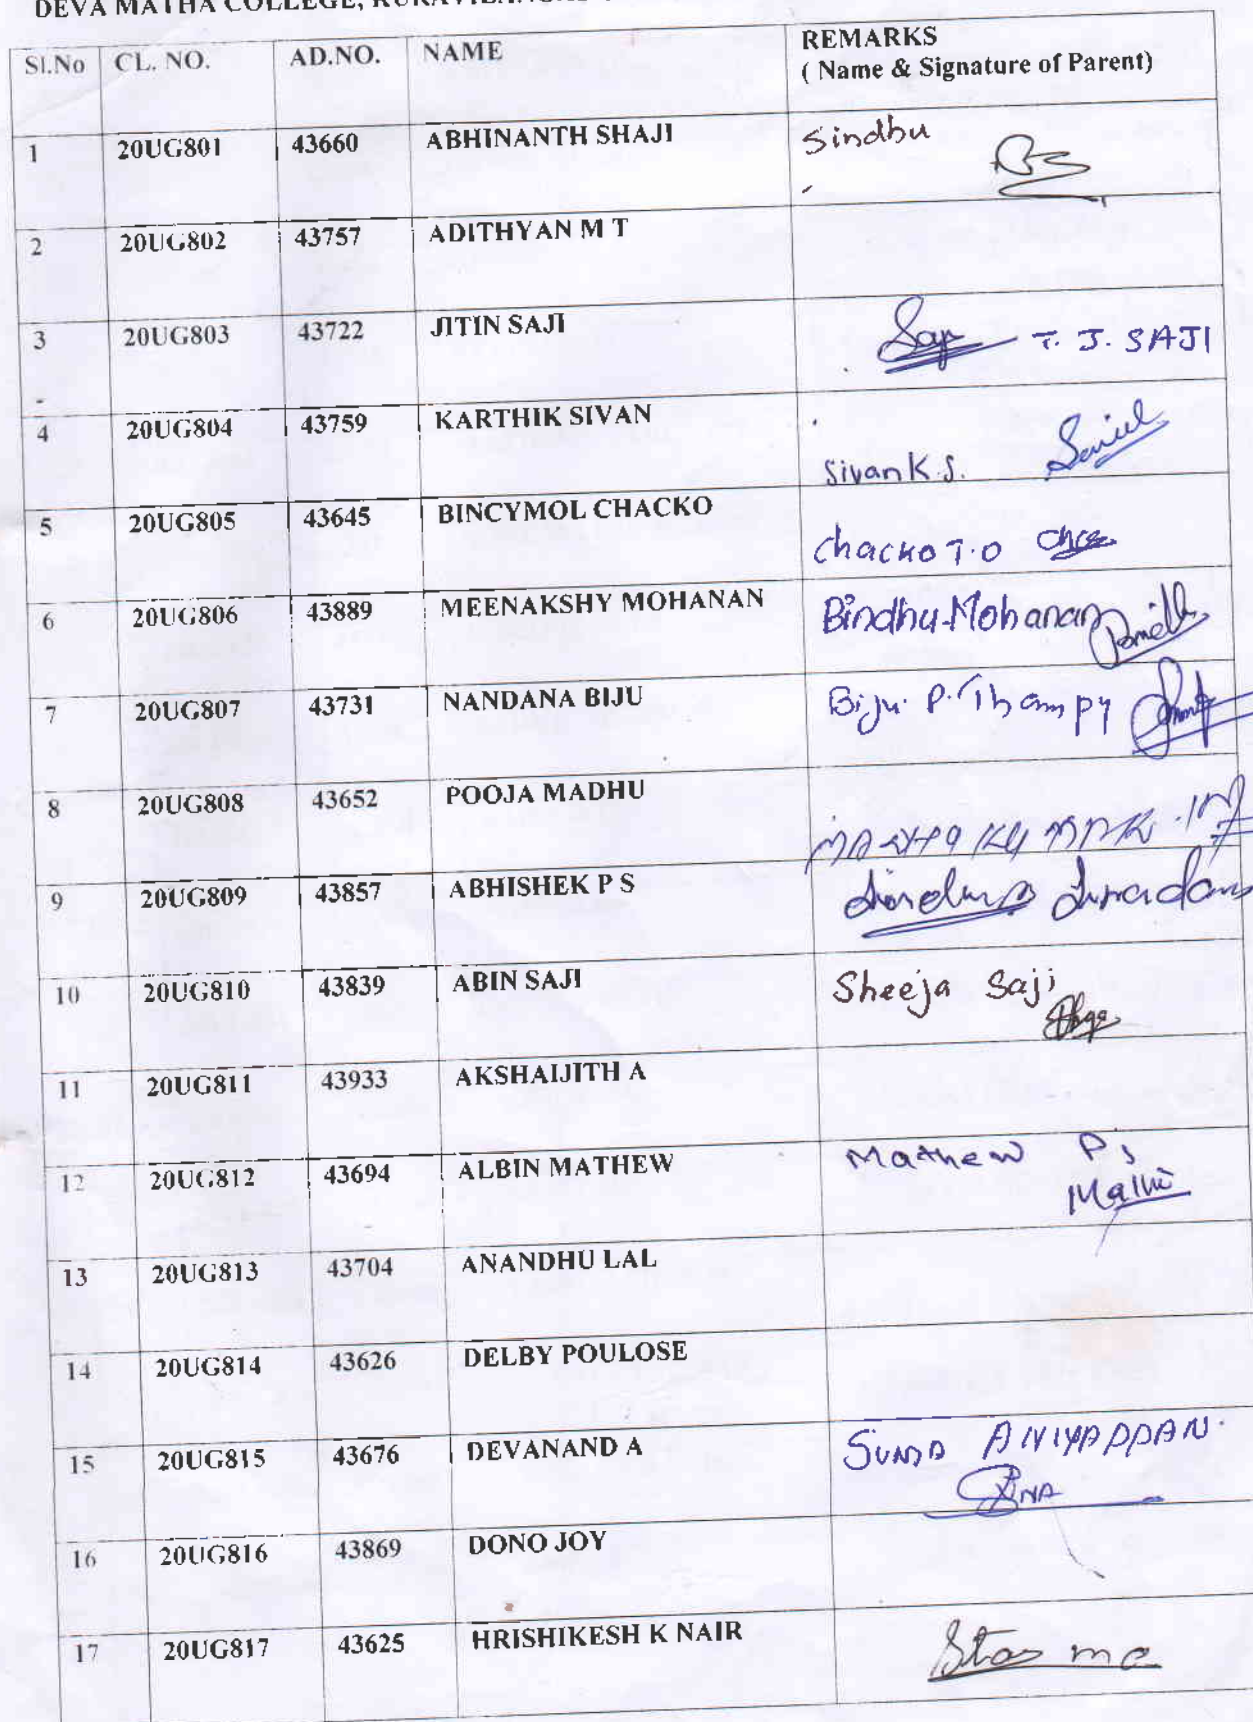 DEVA MATHA COLLEGE,
Sl.No CL. NO. AD.NO. NAME REMARKS
( Name & Signature of Parent)
1 20UG801 43660 ABHINANTH SHAJI Sindhu
2 20UG802 43757 ADITHYAN M T
3 20UG803 43722 JITIN SAJI Saji T. J. SAJI
4 20UG804 43759 KARTHIK SIVAN
Sivan K.S.
5 20UG805 43645 BINCYMOL CHACKO
Chacko T.O
6 20UG806 43889 MEENAKSHY MOHANAN Bindhu Mohanan
7 20UG807 43731 NANDANA BIJU Biju. P. Thampy
8 20UG808 43652 POOJA MADHU
9 20UG809 43857 ABHISHEK P S
10 20UG810 43839 ABIN SAJI Sheeja Saji
11 20UG811 43933 AKSHAIJITH A
12 20UG812 43694 ALBIN MATHEW Mathew P J
13 20UG813 43704 ANANDHU LAL
14 20UG814 43626 DELBY POULOSE
15 20UG815 43676 DEVANAND A
16 20UG816 43869 DONO JOY
17 20UG817 43625 HRISHIKESH K NAIR